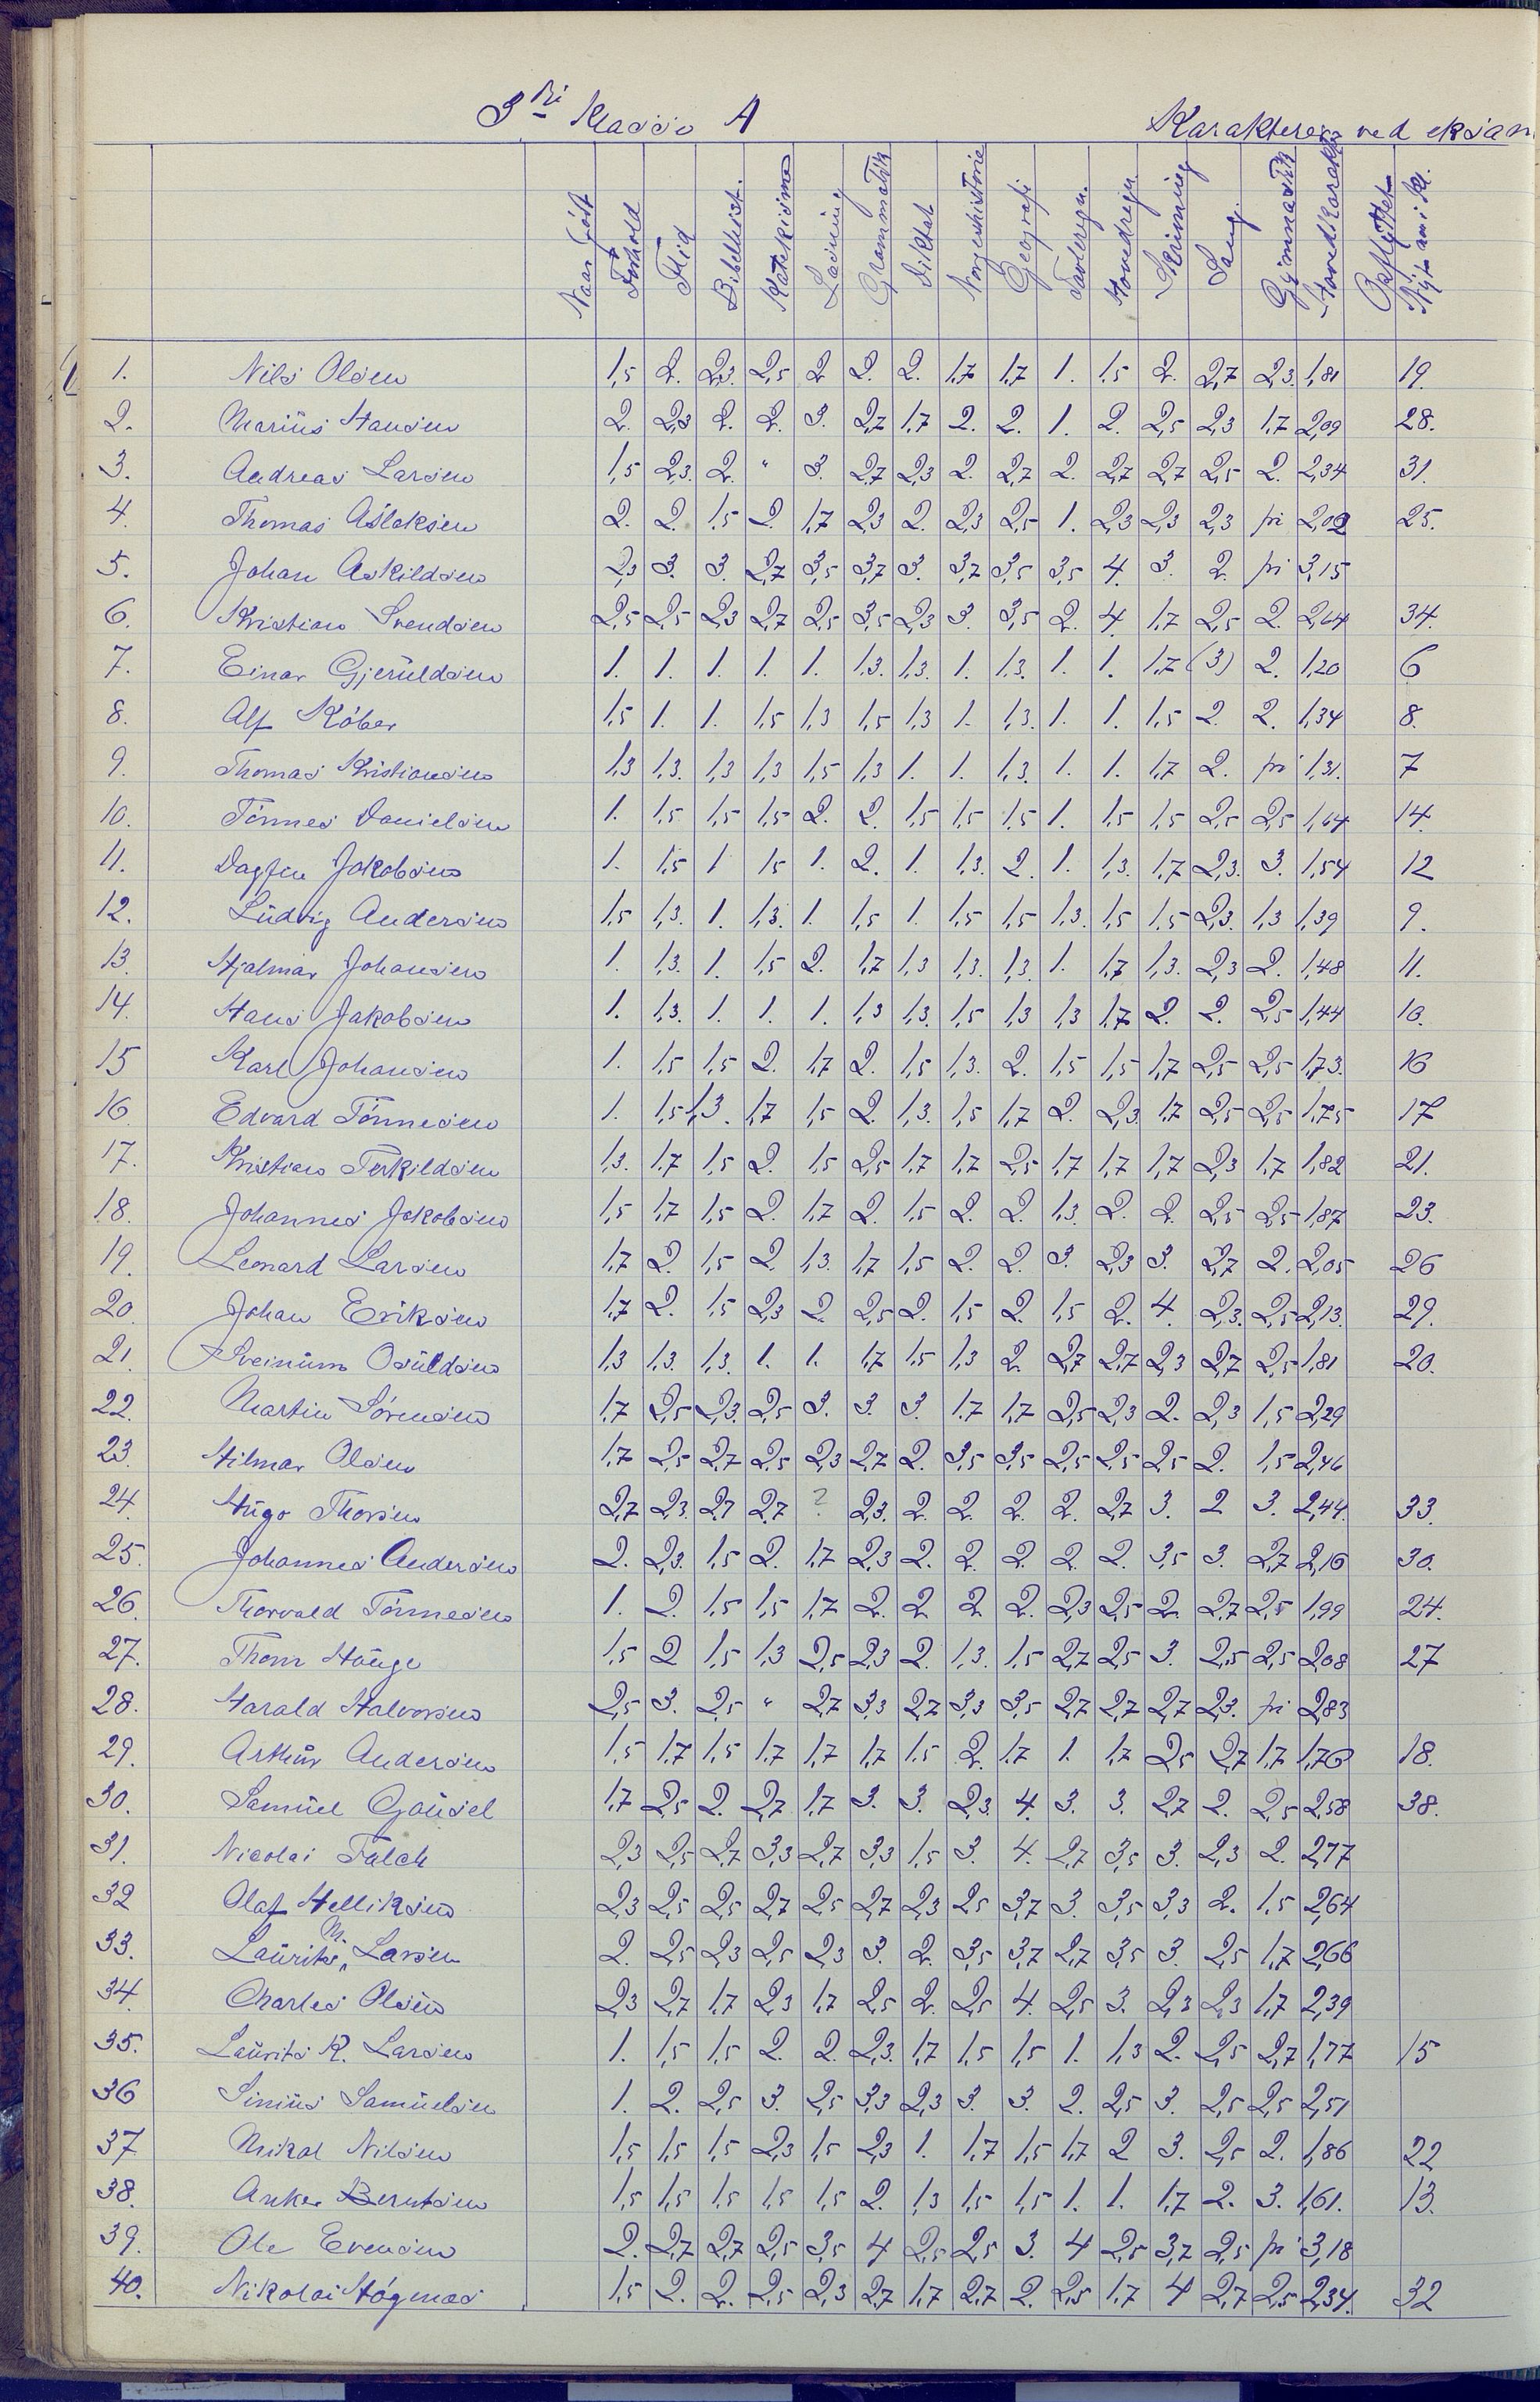 3die Klasse A
Karakterer ved eksam
Naar født Forhold Flid Bibelhist. Katekisme Læsning Grammatik Diktat Norgeshistorie Geografi Tavleregn. Hovedregn. Skrivning Sang. Gymnastik Hovedkarakter Opflyttet Nyt nr. i Kl.
1. Nils Olsen 1,5 2. 2,3. 2,5 2 2. 2. 1,7 1,7 1. 1,5 2. 2,7 2,3. 1,81 19.
2. Marius Hansen 2. 2,3 2. 2. 3. 2,7 1,7 2. 2. 1. 2. 2,5 2,3 1,7 2,09 28.
3. Andreas Larsen 1,5 2,3. 2. " 3. 2,7 2,3 2. 2,7 2. 2,7 2,7 2,5 2. 2,34 31.
4. Thomas Aslaksen 2. 2. 1,5 2. 1,7 2,3 2. 2,3 2,5 1. 2,3 2,3 2,3 fri 2,02 25.
5. Johan Askildsen 2,3 3. 3. 2,7 3,5 3,7 3. 3,7 3,5 3,5 4. 3. 2. fri 3,15
6. Kristian Svendsen 2,5 2,5 2,3 2,7 2,5 3,5 2,3 3. 3,5 2. 4. 1,7 2,5 2. 2,64 34.
7. Einar Gjeruldsen 1. 1. 1. 1. 1. 1,3. 1,3. 1. 1,3. 1. 1. 1,7 (3) 2. 1,20 6
8. Alf Köber 1,5 1. 1. 1,5 1,3 1,5 1,3 1. 1,3. 1. 1. 1,5 2. 2. 1,34 8.
9. Thomas Kristiansen 1,3 1,3. 1,3 1,3 1,5 1,3 1. 1. 1,3. 1. 1. 1,7 2. fri 1,31. 7
10. Tönnes Danielsen 1. 1,5 1,5 1,5 2. 2. 1,5 1,5 1,5 1. 1,5 1,5 2,5 2,5 1,64 14.
11. Dagfin Jakobsen 1. 1,5 1 1,5 1. 2. 1. 1,3. 2. 1. 1,3. 1,7 2,3. 3. 1,54 12
12. Ludvig Andersen 1,5 1,3. 1. 1,3. 1. 1,5 1. 1,5 1,5 1,3. 1,5 1,5 2,3. 1,3 1,39 9.
13. Hjalmar Johansen 1. 1,3. 1. 1,5 2. 1,7 1,3 1,3. 1,3 1. 1,7 1,3. 2,3 2. 1,48 11.
14. Hans Jakobsen 1. 1,3. 1. 1. 1. 1,3 1,3. 1,5 1,3 1,3 1,7 2. 2. 2,5 1,44 10.
15 Karl Johansen 1. 1,5 1,5 2. 1,7 2. 1,5 1,3. 2. 1,5 1,5 1,7 2,5 2,5 1,73. 16
16. Edvard Tönnesen 1. 1,5 1,3. 1,7 1,5 2. 1,3. 1,5 1,7 2. 2,3. 1,7 2,5 2,5 1,75 17
17. Kristian Terkildsen 1,3. 1,7 1,5 2. 1,5 2,5 1,7 1,7 2,5 1,7 1,7 1,7 2,3 1,7 1,82 21.
18. Johannes Jakobsen 1,5 1,7 1,5 2. 1,7 2. 1,5 2. 2. 1,3. 2. 2. 2,5 2,5 1,87 23.
19. Leonard Larsen 1,7 2. 1,5 2. 1,3. 1,7 1,5 2. 2. 3. 2,3 3. 2,7 2. 2,05 26
20. Johan Eriksen 1,7 2. 1,5 2,3 2. 2,5 2. 1,5 2. 1,5 2. 4. 2,3. 2,5 2,13. 29.
21. Sveinum Osuldsen 1,3 1,3. 1,3. 1. 1. 1,7 1,5 1,3 2. 2,7 2,7 2,3 2,7 2,5 1,81 20.
22. Martin Sörensen 1,7 2,5 2,3. 2,5 3. 3. 3. 1,7 1,7 2,5 2,3 2. 2,3 1,5 2,29
23. Hilmar Olsen 1,7 2,5 2,7 2,5 2,3 2,7 2. 3,5 3,5 2,5 2,5 2,5 2. 1,5 2,46
24. Hugo Thorsen 2,7 2,3. 2,7 2,7 ? 2,3. 2. 2. 2. 2. 2,7 3. 2 3. 2,44. 33.
25. Johannes Andersen 2. 2,3. 1,5 2. 1,7 2,3 2. 2. 2. 2. 2. 3,5 3. 2,7 2,16 30.
26. Thorvald Tönnesen 1. 2. 1,5 1,5 1,7 2. 2 2. 2. 2,3 2,5 2. 2,7 2,5 1,99 24.
27. Thom Hauge 1,5 2 1,5 1,3 2,5 2,3 2. 1,3. 1,5 2,7 2,5 3. 2,5 2,5 2,08 27
28. Harald Halvorsen 2,5 3. 2,5 " 2,7 3,3 2,7 3,3 3,5 2,7 2,7 2,7 2,3. fri 2,83
29. Arthur Andersen 1,5 1,7 1,5 1,7 1,7 1,7 1,5 2. 1,7 1. 1,7 2,5 2,7 1,7 1,76 18.
30. Samuel Gausel 1,7 2,5 2. 2,7 1,7 3. 3. 2,3 4. 3. 3. 2,7 2. 2,5 2,58 38.
31. Nicolai Falch 2,3 2,5 2,7 3,3 2,7 3,3 1,5 3. 4. 2,7 3,5 3. 2,3 2. 2,77
32 Olaf Helliksen 2,3 2,5 2,5 2,7 2,5 2,7 2,3 2,5 3,7 3. 3,5 3,3 2. 1,5 2,64
33. Laurits M. Larsen 2. 2,5 2,3 2,5 2,3 3. 2. 3,5 3,7 2,7 3,5 3. 2,5 1,7 2,66
34. Charles Olsen 2,3 2,7 1,7 2,3 1,7 2,5 2. 2,5 4. 2,5 3. 2,3 2,3 1,7 2,39
35. Laurits R. Larsen 1. 1,5 1,5 2. 2. 2,3. 1,7 1,5 1,5 1. 1,3 2. 2,5 2,7 1,77 15
36 Sinius Samuelsen 1. 2. 2,5 3. 2,5 3,3 2,3 3. 3. 2. 2,5 3. 2,5 2,5 2,51
37. Mikal Nilsen 1,5 1,5 1,5 2,3 1,5 2,3 1. 1,7 1,5 1,7 2 3. 2,5 2. 1,86 22
38. Anker Berntsen 1,5 1,5 1,5 1,5 1,5 2. 1,3 1,5 1,5 1. 1. 1,7 2. 3. 1,61. 13.
39. Ole Evensen 2. 2,7 2,7 2,5 3,5 4 2,5 2,5 3. 4 2,5 3,7 2,5 fri 3,18
40. Nikolai Högmas 1,5 2. 2. 2,5 2,3 2,7 1,7 2,7 2. 2,5 1,7 4 2,7 2,5 2,34. 32